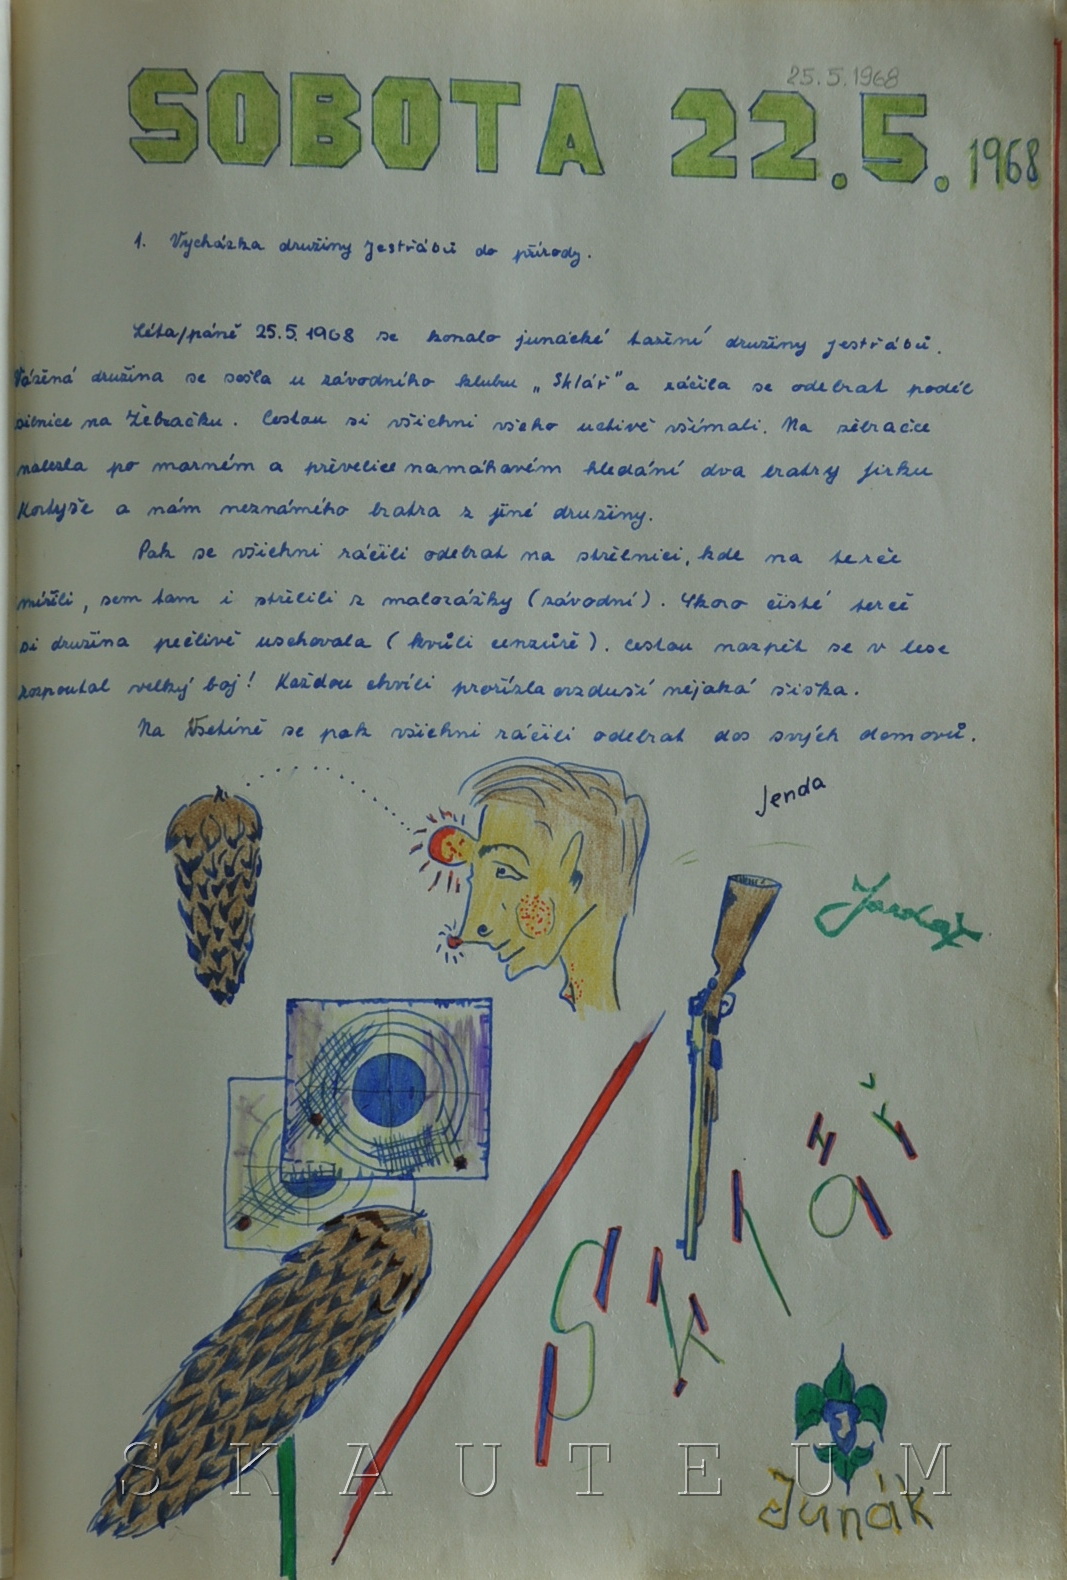 25.5.1968
SOBOTA 22.5. 1968
1. Vycházka družiny Jestřábů do přírody.
Léta/páně 25.5.1968 se konalo junácké tažení družiny Jestřábů.
Vážená družina se sešla u závodního klubu „Sklář“ a ráčila se odebrat podél
silnice na Žebračku. Cestou si všichni všeho uctivě všímali. Na žebračce
nalezla po marném a převelice namáhavém hledání dva bratry Jirku
Kortyše a nám neznámého bratra z jiné družiny.
Pak se všichni ráčili odebrat na střelnici, kde na terče
mířili, sem tam i stříleli z malorážky (závodní). Skoro čisté terče
si družina pečlivě uschovala (kvůli cenzůře). Cestou nazpět se v lese
rozpoutal velký boj! Každou chvíli prořízla ovzduší nějaká šiška.
Na Vsetíně se pak všichni ráčili odebrat dos svých domovů.
Jenda
Sklář
J
Junák
SKAUTEUM